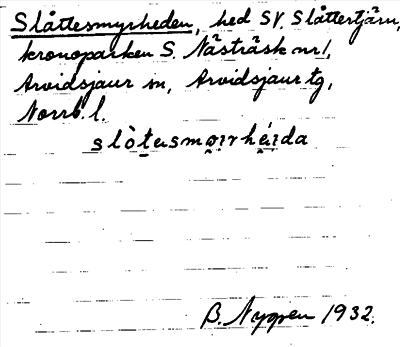 Slåttesmyrheden, hed SV. Slåttertjärn,
kronoparken S. Nästräsk nr 1,
Arvidsjaur sn, Arvidsjaur tg,
Norrb. l.
slòtasmøirhéida
B. Nygren 1932.